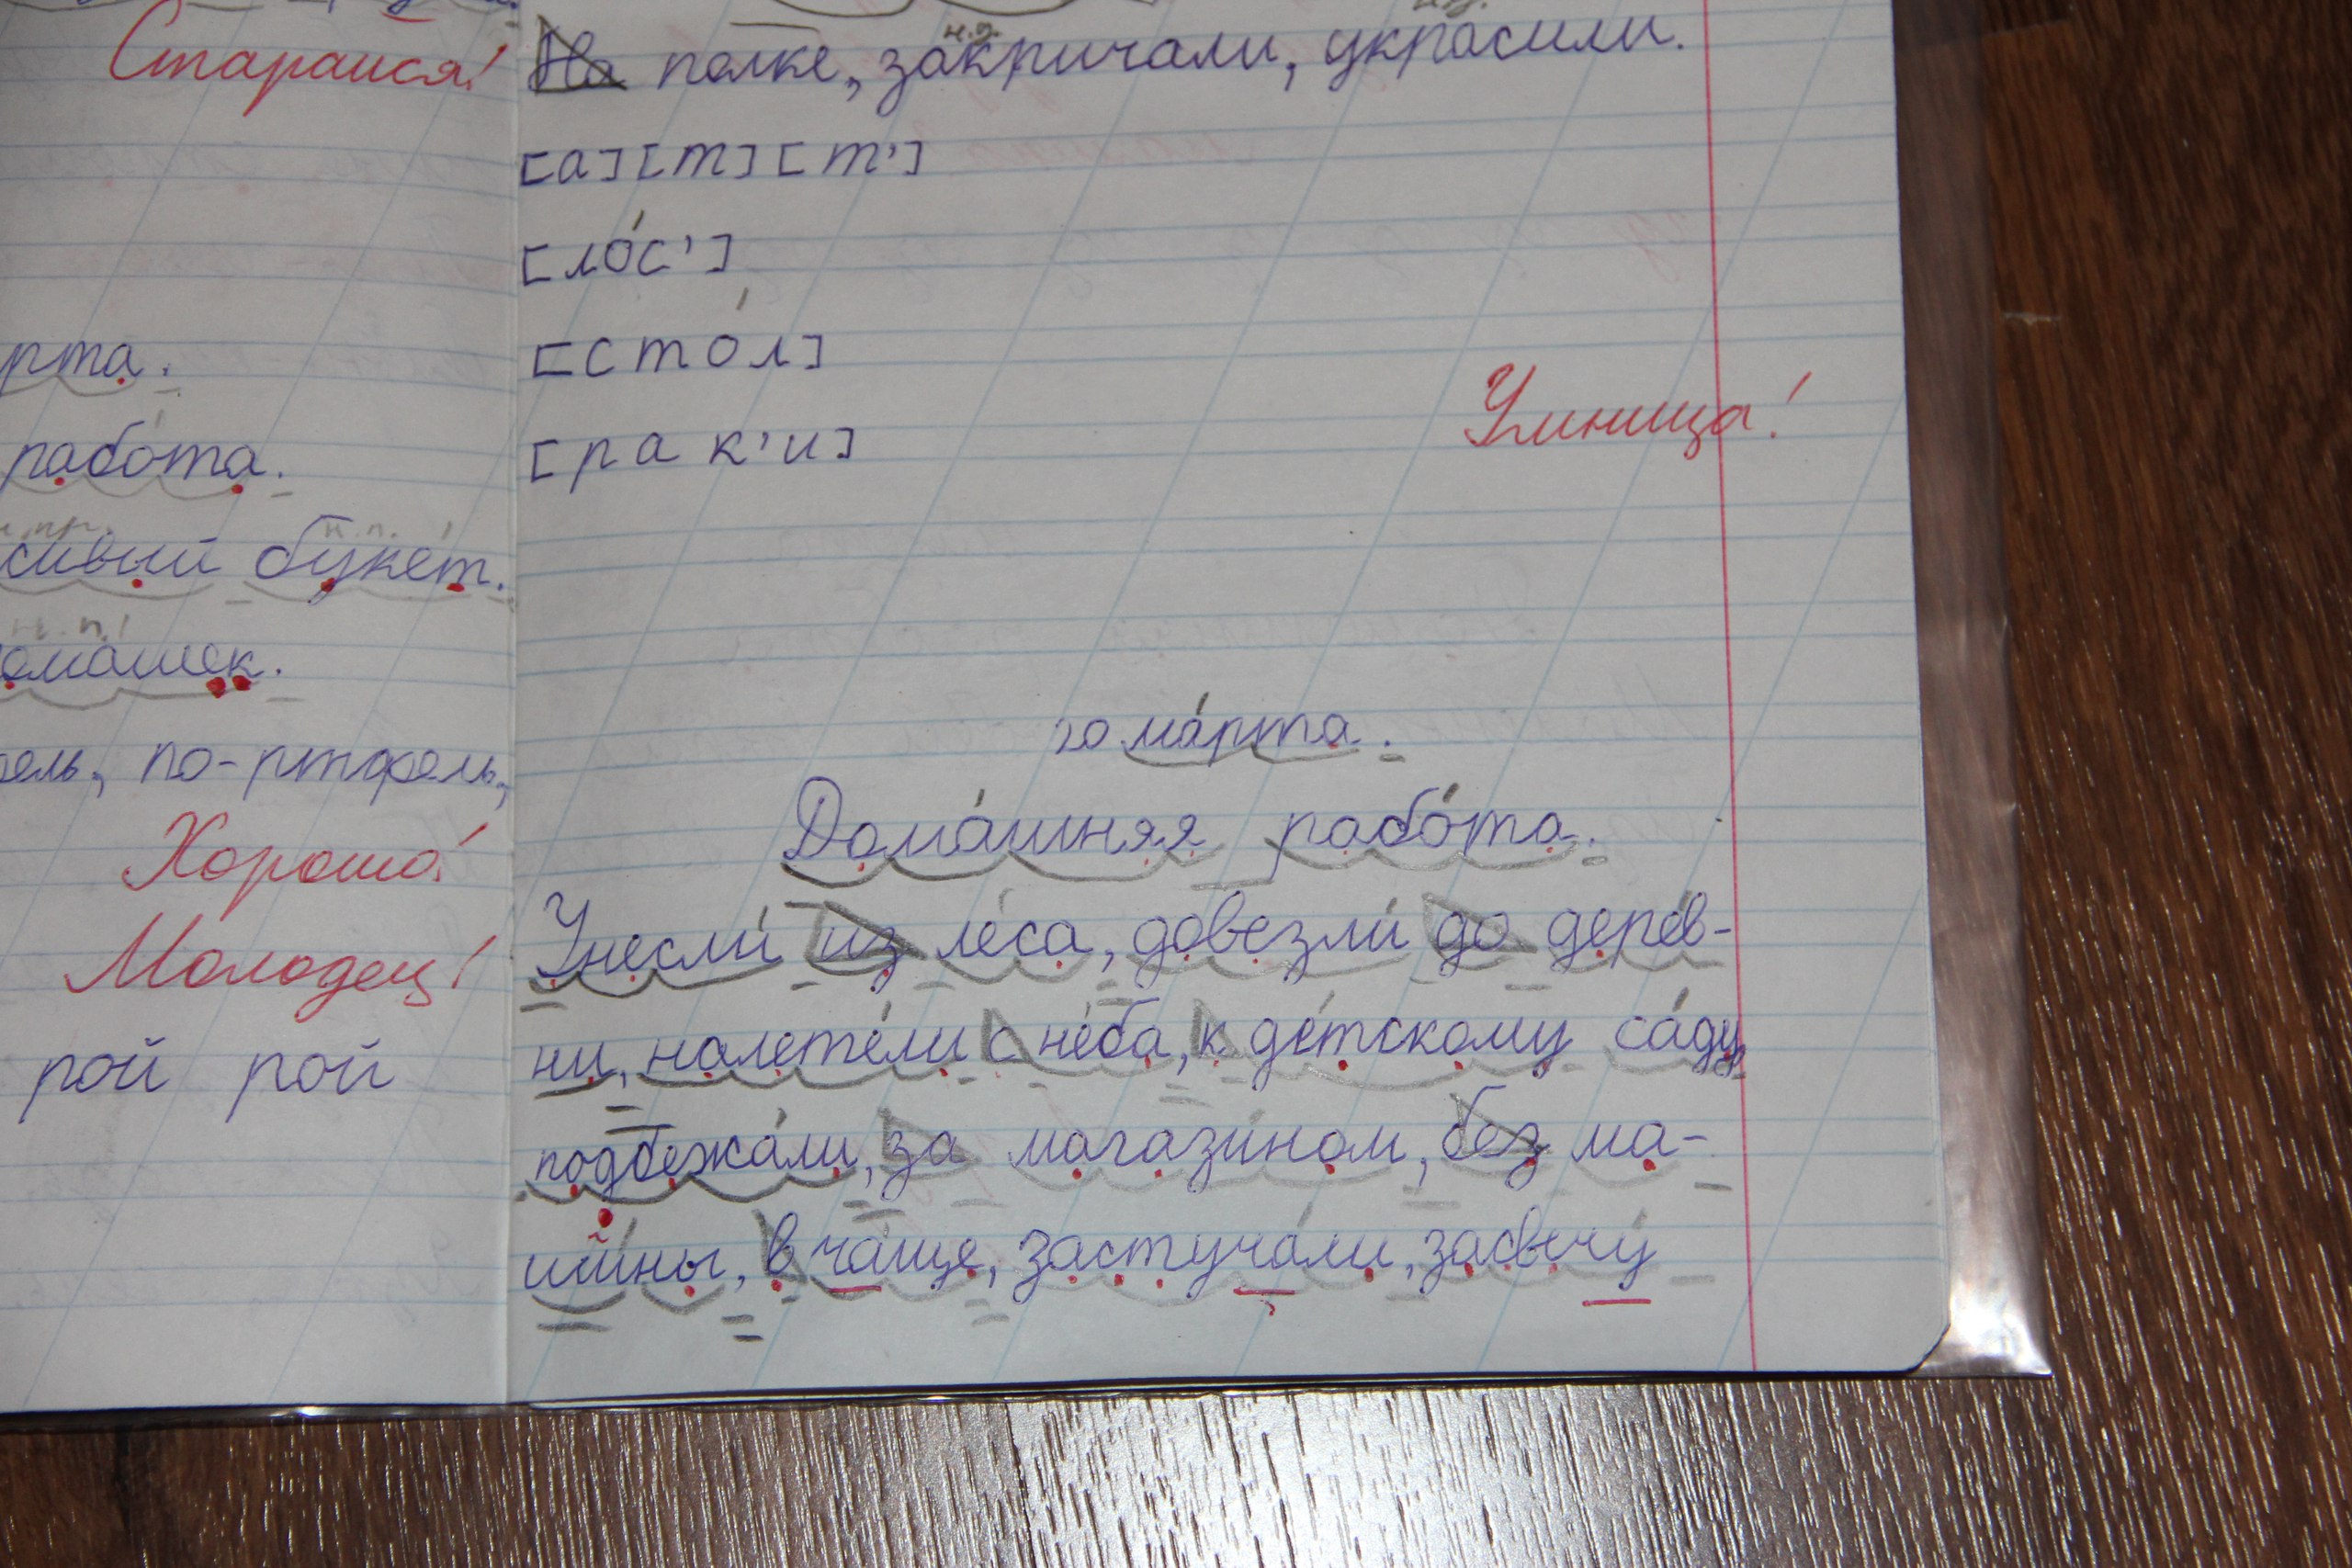 Старайся!
рта.
работа.
сивый букет.
омашек.
ель, по-ртфель,
Хорошо!
Молодец!
рой рой
н.д.
На полке, закричали, украсили.
[а][т][т']
[ло́с']
[сто́л]
[рак'и]
Умница!
10 ма́рта.
Дома́шняя рабо́та.
Унесли́ из ле́са, довезли́ до дере́в-
ни, налете́ли с не́ба, к де́тскому са́ду
подбежа́ли, за магази́ном, без ма-
ши́ны, в ча́ще, застуча́ли, засвечу́